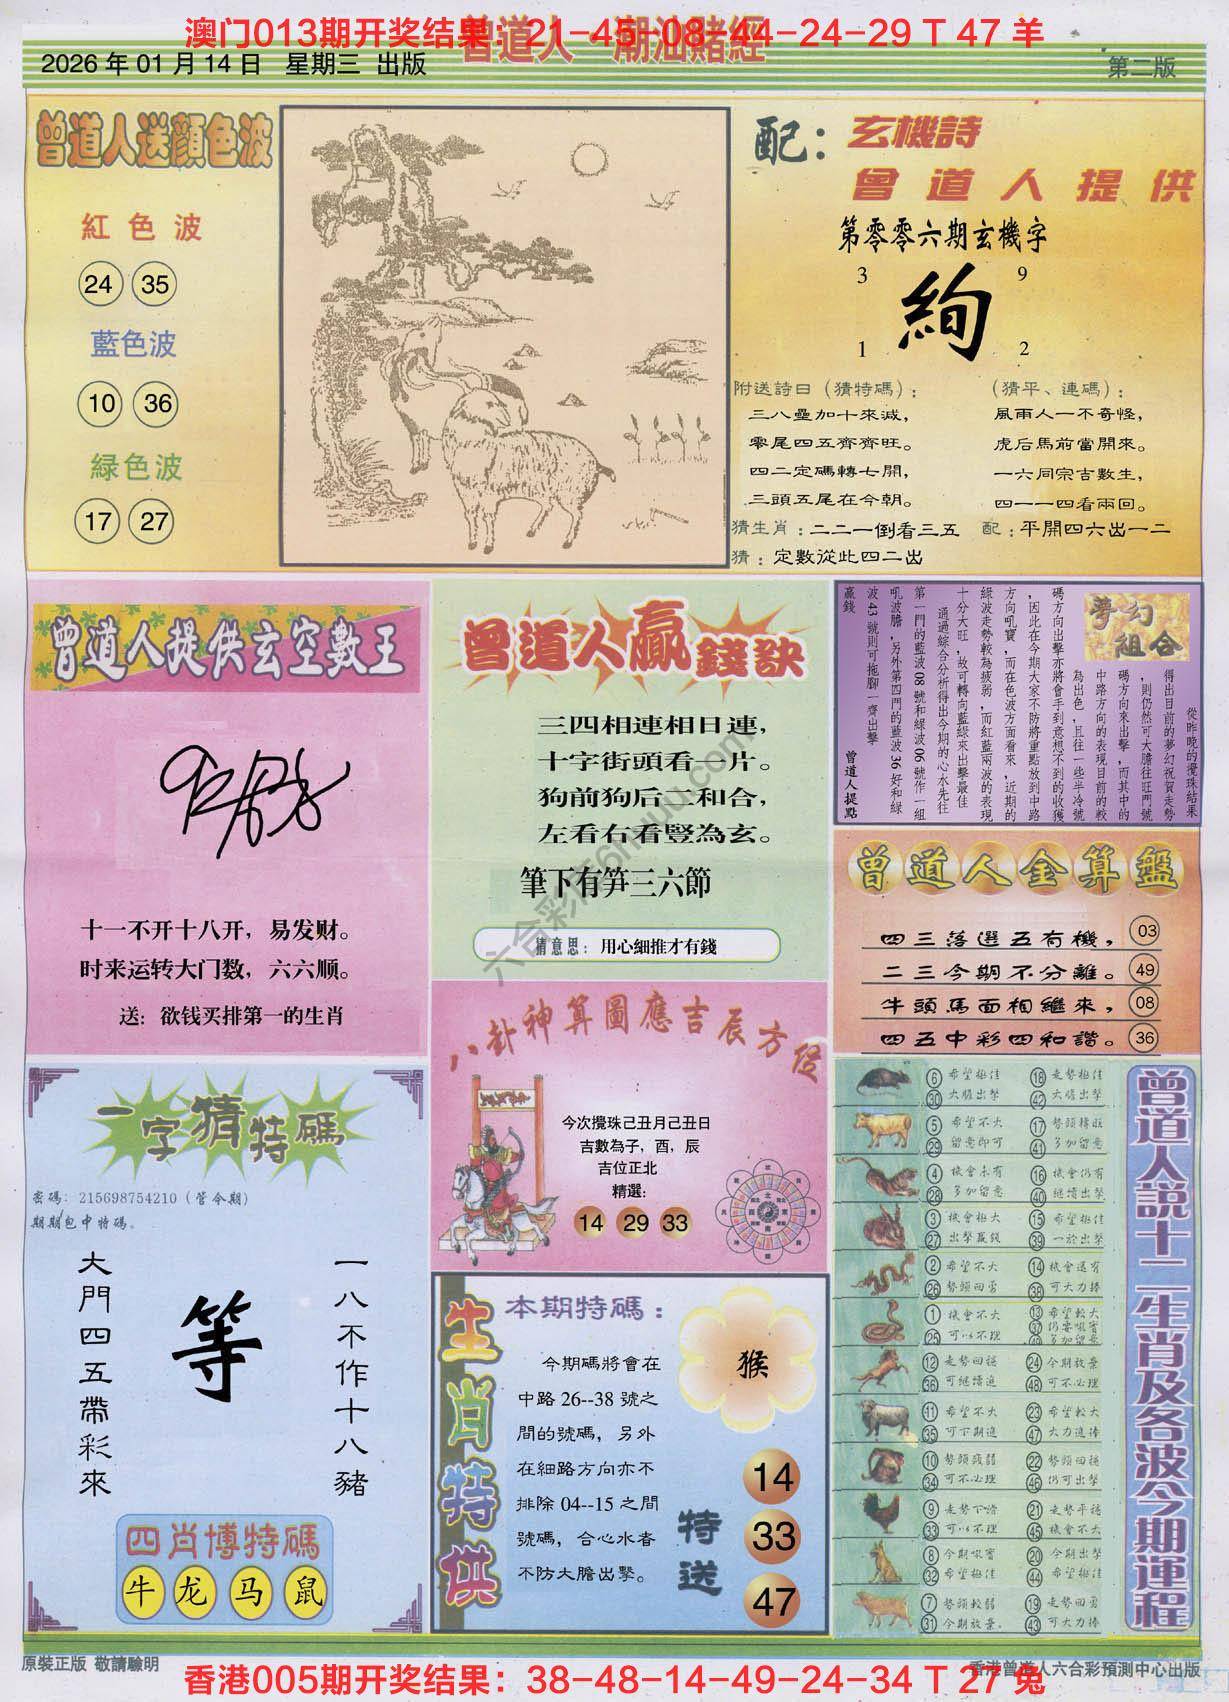 澳门013期开奖结果：21-45-08-44-24-29 T 47 羊
曾道人 潮汕賭經
2026 年 01 月 14 日 星期三 出版
第二版
曾道人送顏色波
紅色波
24 35
藍色波
10 36
緑色波
17 27
配：玄機詩
曾道人提供
第零零六期玄機字
3 9
絢
1 2
附送詩曰（猜特碼）：
三八疊加十來減，
零尾四五齊齊旺。
四二定碼轉七開，
三頭五尾在今朝。
（猜平、連碼）：
風雨人一不奇怪，
虎后馬前當開來。
一六同宗吉數生，
四一一四看兩回。
猜生肖：二二一倒看三五
配：平開四六出一二
猜：定數從此四二出
曾道人提供玄空數王
十一不开十八开，易发财。
时来运转大门数，六六顺。
送：欲钱买排第一的生肖
曾道人贏錢訣
三四相連相日連，
十字街頭看一片。
狗前狗后二和合，
左看右看豎為玄。
筆下有笋三六節
猜意思：用心細推才有錢
夢幻組合
從昨晚的攪珠結果
得出目前的夢幻祝賀走勢
，則仍然可大膽往旺門號
碼方向來出擊，而其中的
中路方向的表現目前的較
為出色，且往一些半冷號
碼方向出擊亦將會手到意想不到的收獲
，因此在今期大家不防將重點放到中路
方向吼寶，而在色波方面看來，近期的
綠波走勢較為疲弱，而紅藍兩波的表現
十分大旺，故可轉向藍綠來出擊最佳
通過綜合分析得出今期的心水先往
第一門的藍波 08 號和綠波 06 號作一組
吼波膽，另外第四門的藍波 36 好和綠
波 43 號則可拖腳一齊出擊
贏錢
曾道人提點
曾道人金算盤
四三落選五有機， 03
二三今期不分離。 49
牛頭馬面相繼來， 08
四五中彩四和諧。 36
八卦神算圖應吉辰方位
今次攪珠己丑月己丑日
吉數為子，酉，辰
吉位正北
精選：
14 29 33
一字猜特碼
密碼：215698754210（管今期）
期期包中特碼。
大門四五帶彩來
等
一八不作十八豬
四肖博特碼
牛 龙 马 鼠
生肖特供
本期特碼：
猴
今期碼將會在
中路 26--38 號之
間的號碼，另外
在細路方向亦不
排除 04--15 之間
號碼，合心水者
不防大膽出擊。
特送
14
33
47
曾道人説十二生肖及各波今期運程
6 希望極佳 18 走勢極佳
30 大膽出擊 42 大膽出擊
5 希望不大 17 勢頭轉旺
29 留意即可 41 多加留意
4 機會未有 16 機會仍有
28 多加留意 40 繼續出擊
3 機會極大 15 希望極佳
27 出擊贏錢 39 一於出擊
2 希望不大 14 機會還有
26 勢頭回勇 38 可大力捧
1 機會不大 13 希望較大
25 可以不理 37 仍要吸寶
49 多加留意
12 走勢回穩 24 今期放棄
36 可繼續追 48 可不必理
11 希望不大 23 希望較大
35 可下期追 47 大力追捧
10 勢頭疲弱 22 勢頭回穩
34 可不必理 46 仍可出擊
9 走勢下滑 21 走勢平穩
33 可以不理 45 機會不大
8 今期吸寶 20 今期出擊
32 希望極佳 44 希望極佳
7 勢頭較弱 19 走勢回勇
31 今期放棄。 43 可大力捧
原裝正版 敬請驗明
香港曾道人六合彩預測中心出版
香港005期开奖结果：38-48-14-49-24-34 T 27 兔